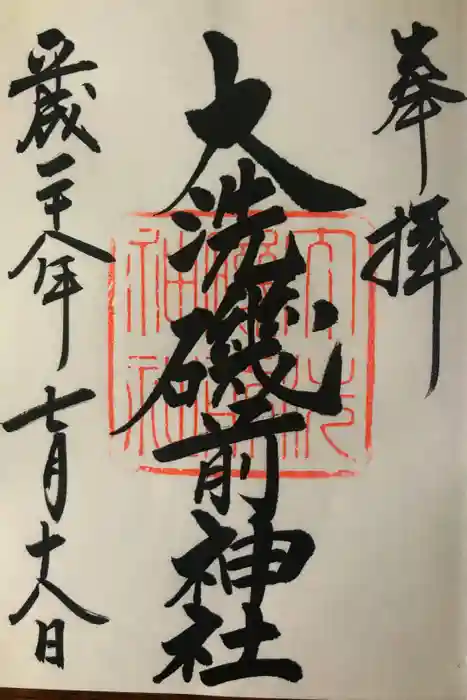 奉拝
大洗磯前神社
大洗
磯前
神社
平成二十八年七月十八日